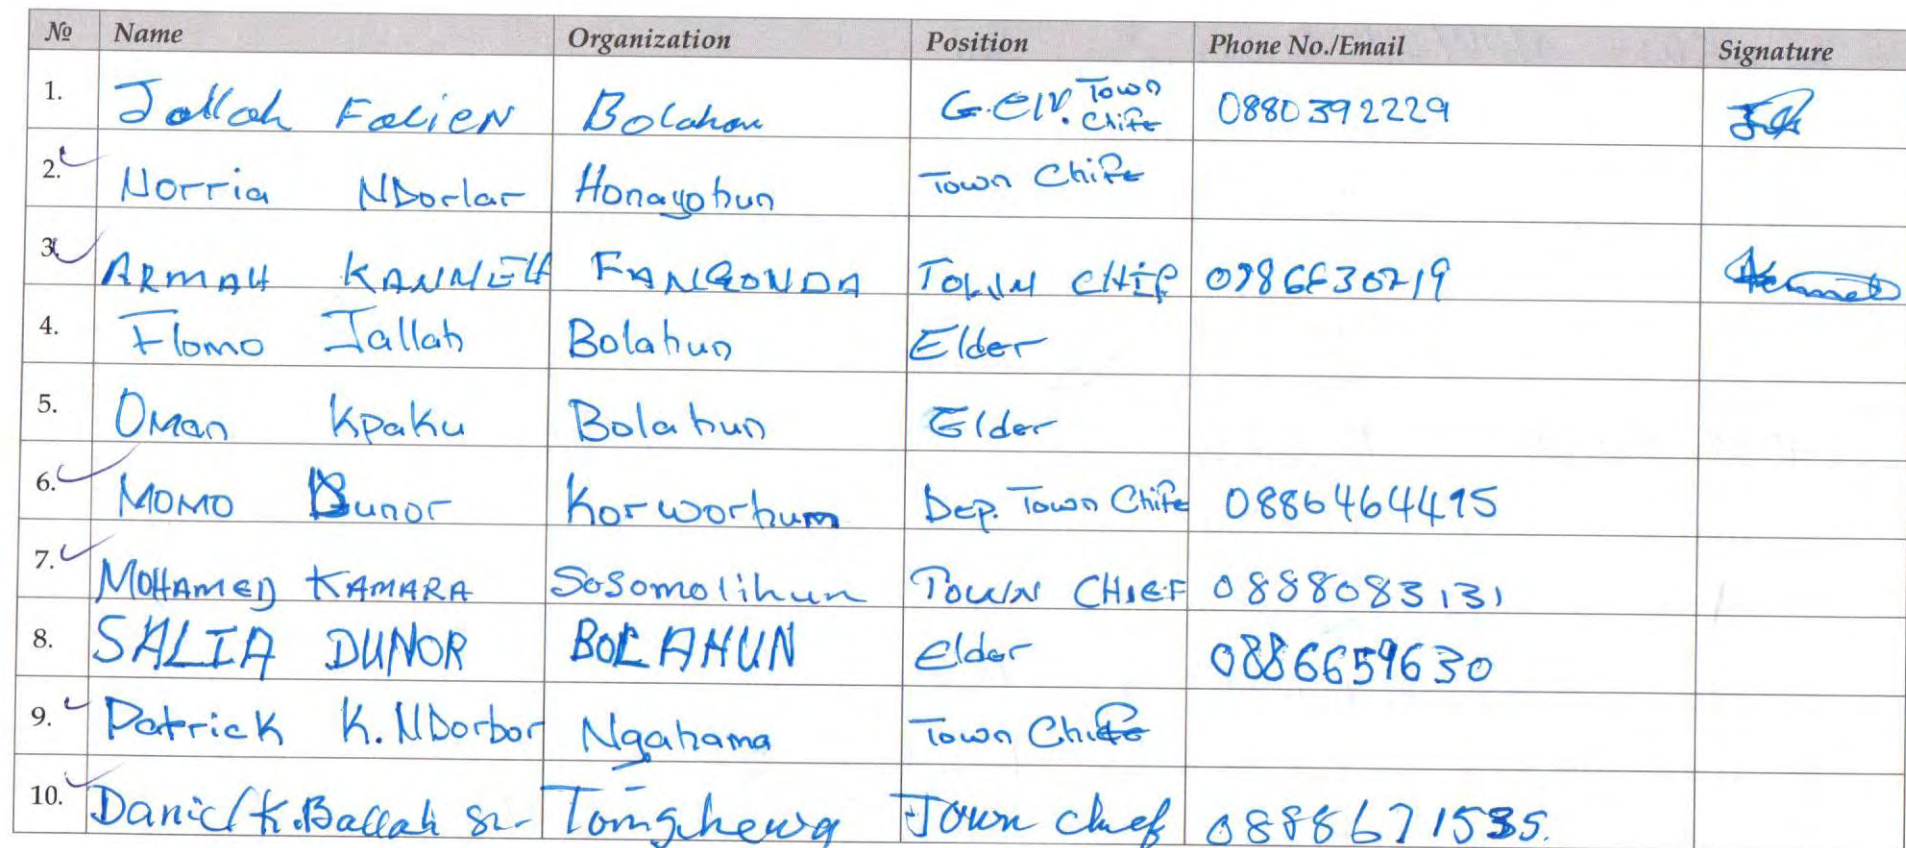 № Name Organization Position Phone No./Email Signature
1. Jallah Fallen Bolahun G.Clv. Town Chife 0880392229
2. Norria NDorlar Honayohun Town Chife
3. ARMAH KANNEH FANGONDA TOWN CHIF
4. Flomo Jallah Bolahun Elder
5. Oman Kpaku Bolahun Elder
6. MOMO Dunor Korworhum Dep. Town Chife 0886464495
7. MOHAMED KAMARA Sosomolihun TOWN CHIEF 0888083131
8. SALIA DUNOR BOLAHUN Elder 0886659630
9. Patrick K. NDorbor Ngahama Town Chife
10. Daniel K. Ballah Sr. Town chief 0888671535.